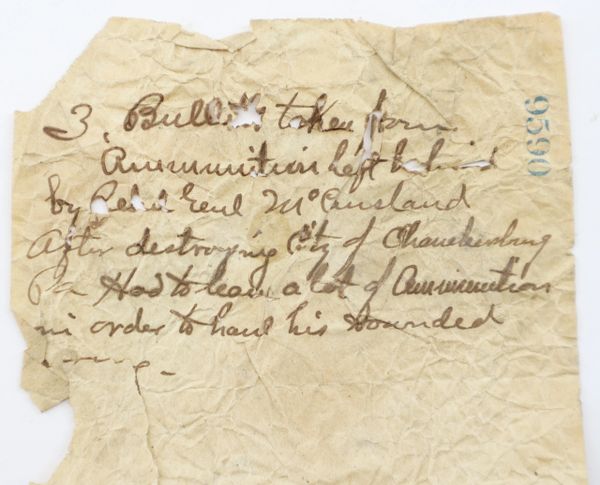 3, Bullets taken from
Ammunition left behind
by Rebel Genl McCausland
After destroying City of Chambersburg
Pa Had to leave a lot of Ammunition
in order to haul his wounded
9590